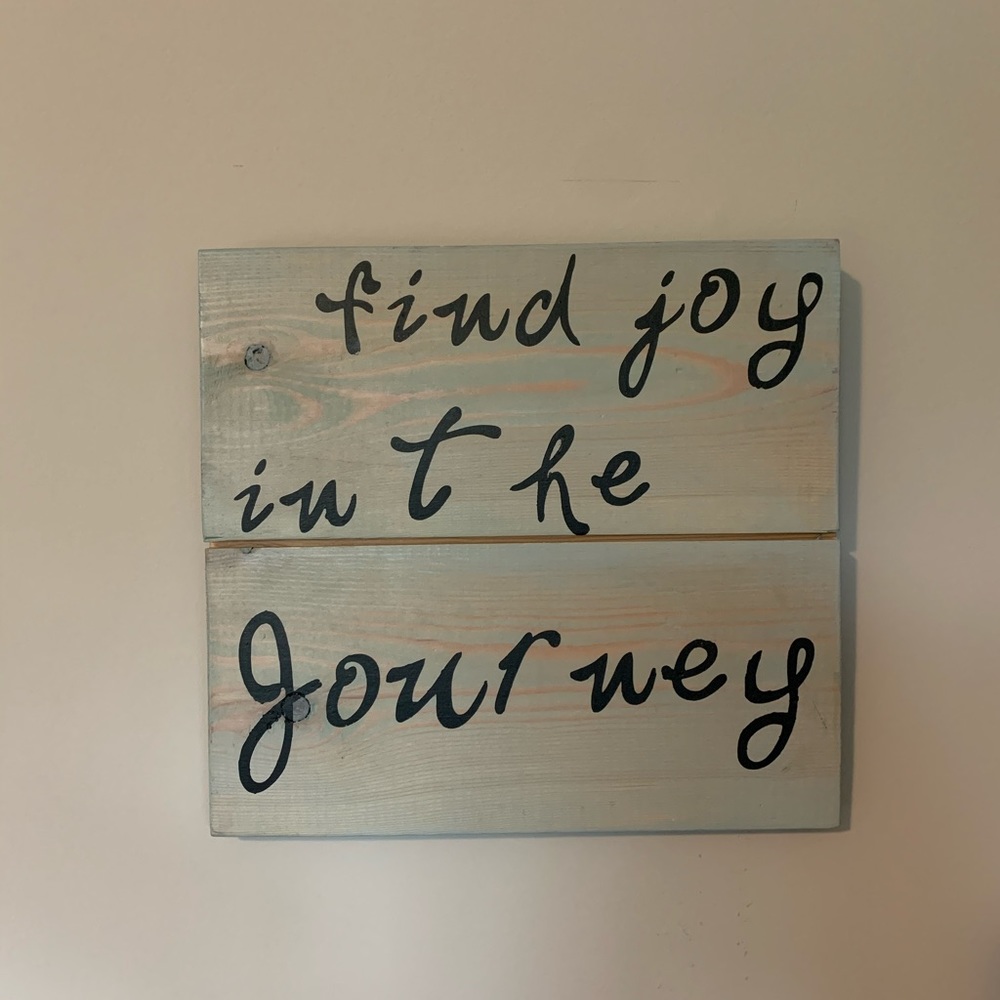 find joy
in the
Journey